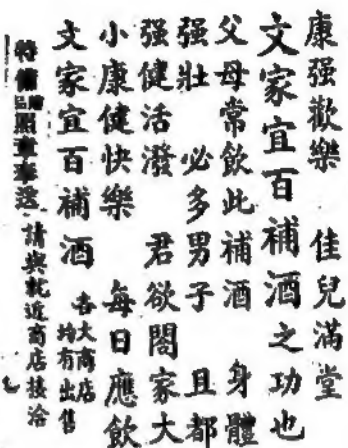 康强歡樂 佳兒滿堂
文家宜百補酒之功也
父母常飲此補酒 身體
强壯 必多男子 且都
强健活潑 君欲閤家大
小康健快樂 每日應飲
文家宜百補酒
各大商店
均有出售
特備 照章奉送 請與就近商店接洽